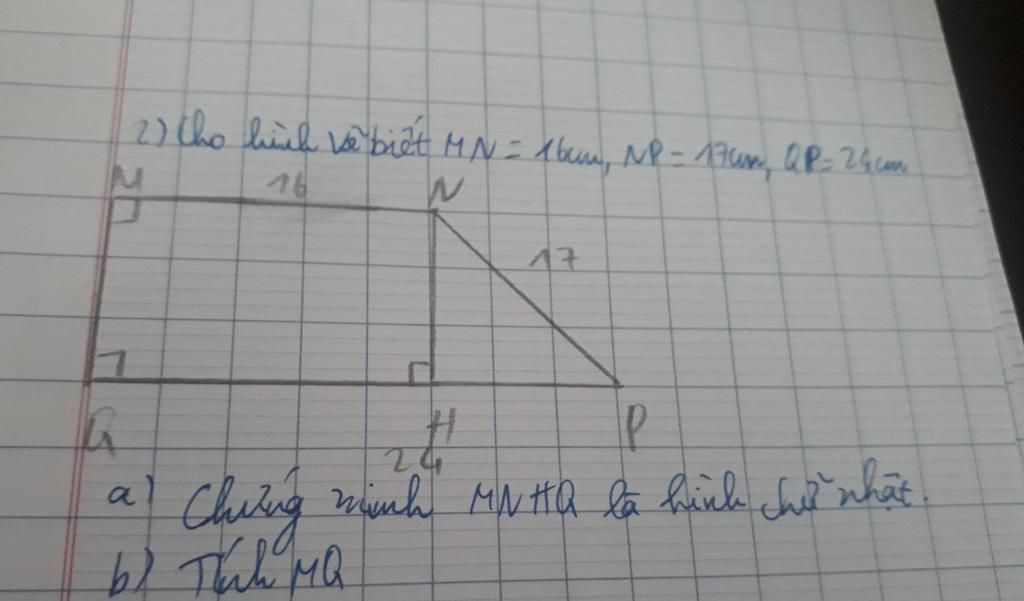 2) Cho hình vẽ biết MN = 16cm, NP = 17cm, QP = 24cm
M 16 N
17
Q H P
24
a) Chứng minh MNHQ là hình chữ nhật.
b) Tính MQ